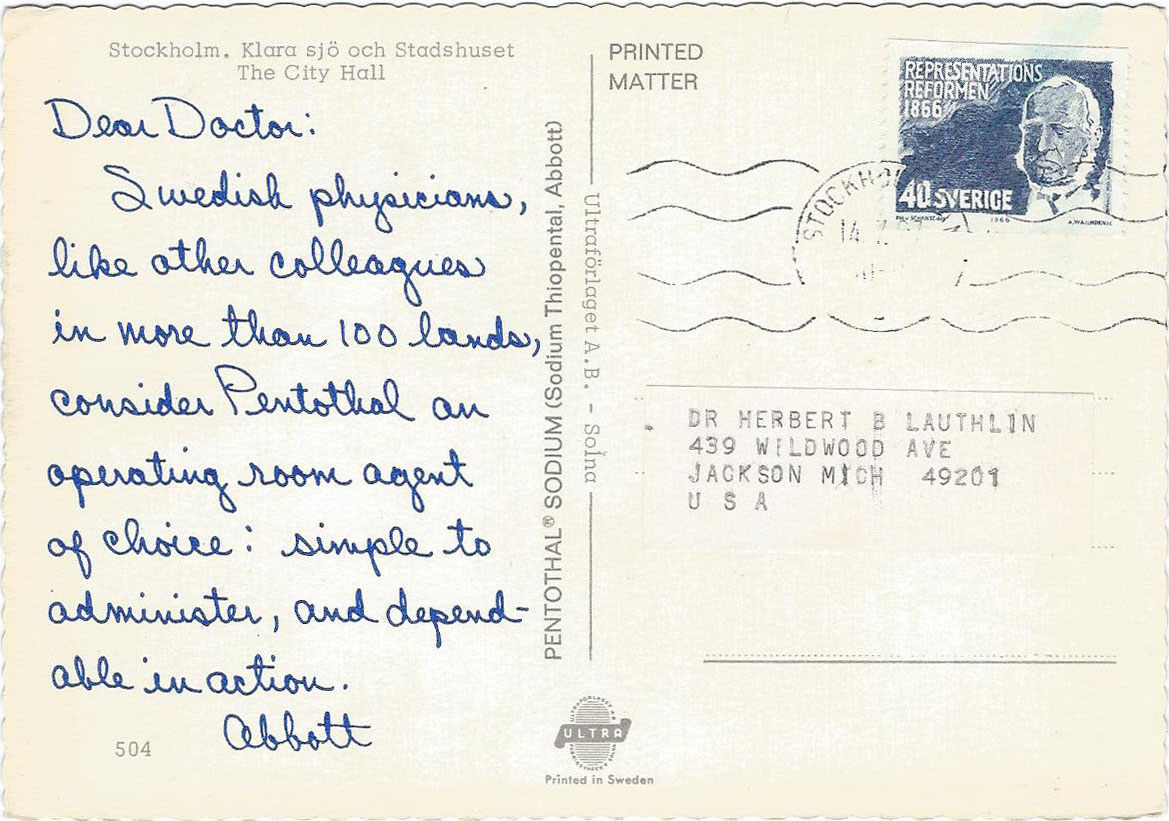 Stockholm. Klara sjö och Stadshuset
The City Hall
Dear Doctor:
Swedish physicians,
like other colleagues
in more than 100 lands,
consider Pentothal an
operating room agent
of choice: simple to
administer, and depend-
able in action.
Abbott
504
PENTOTHAL® SODIUM (Sodium Thiopental, Abbott)
Ultraförlaget A.B. - Solna
PRINTED
MATTER
REPRESENTATIONS
REFORMEN
1866
40 SVERIGE
1966
STOCKHO
14
DR HERBERT B LAUTHLIN
439 WILDWOOD AVE
JACKSON MICH 49201
U S A
ULTRA
Printed in Sweden